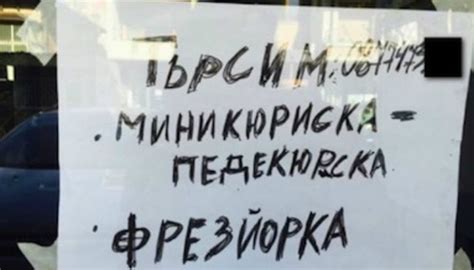 Търсим: 0877479
· МИНИКЮРИСКА -
ПЕДЕКЮРСКА
· ФРЕЗЙОРКА